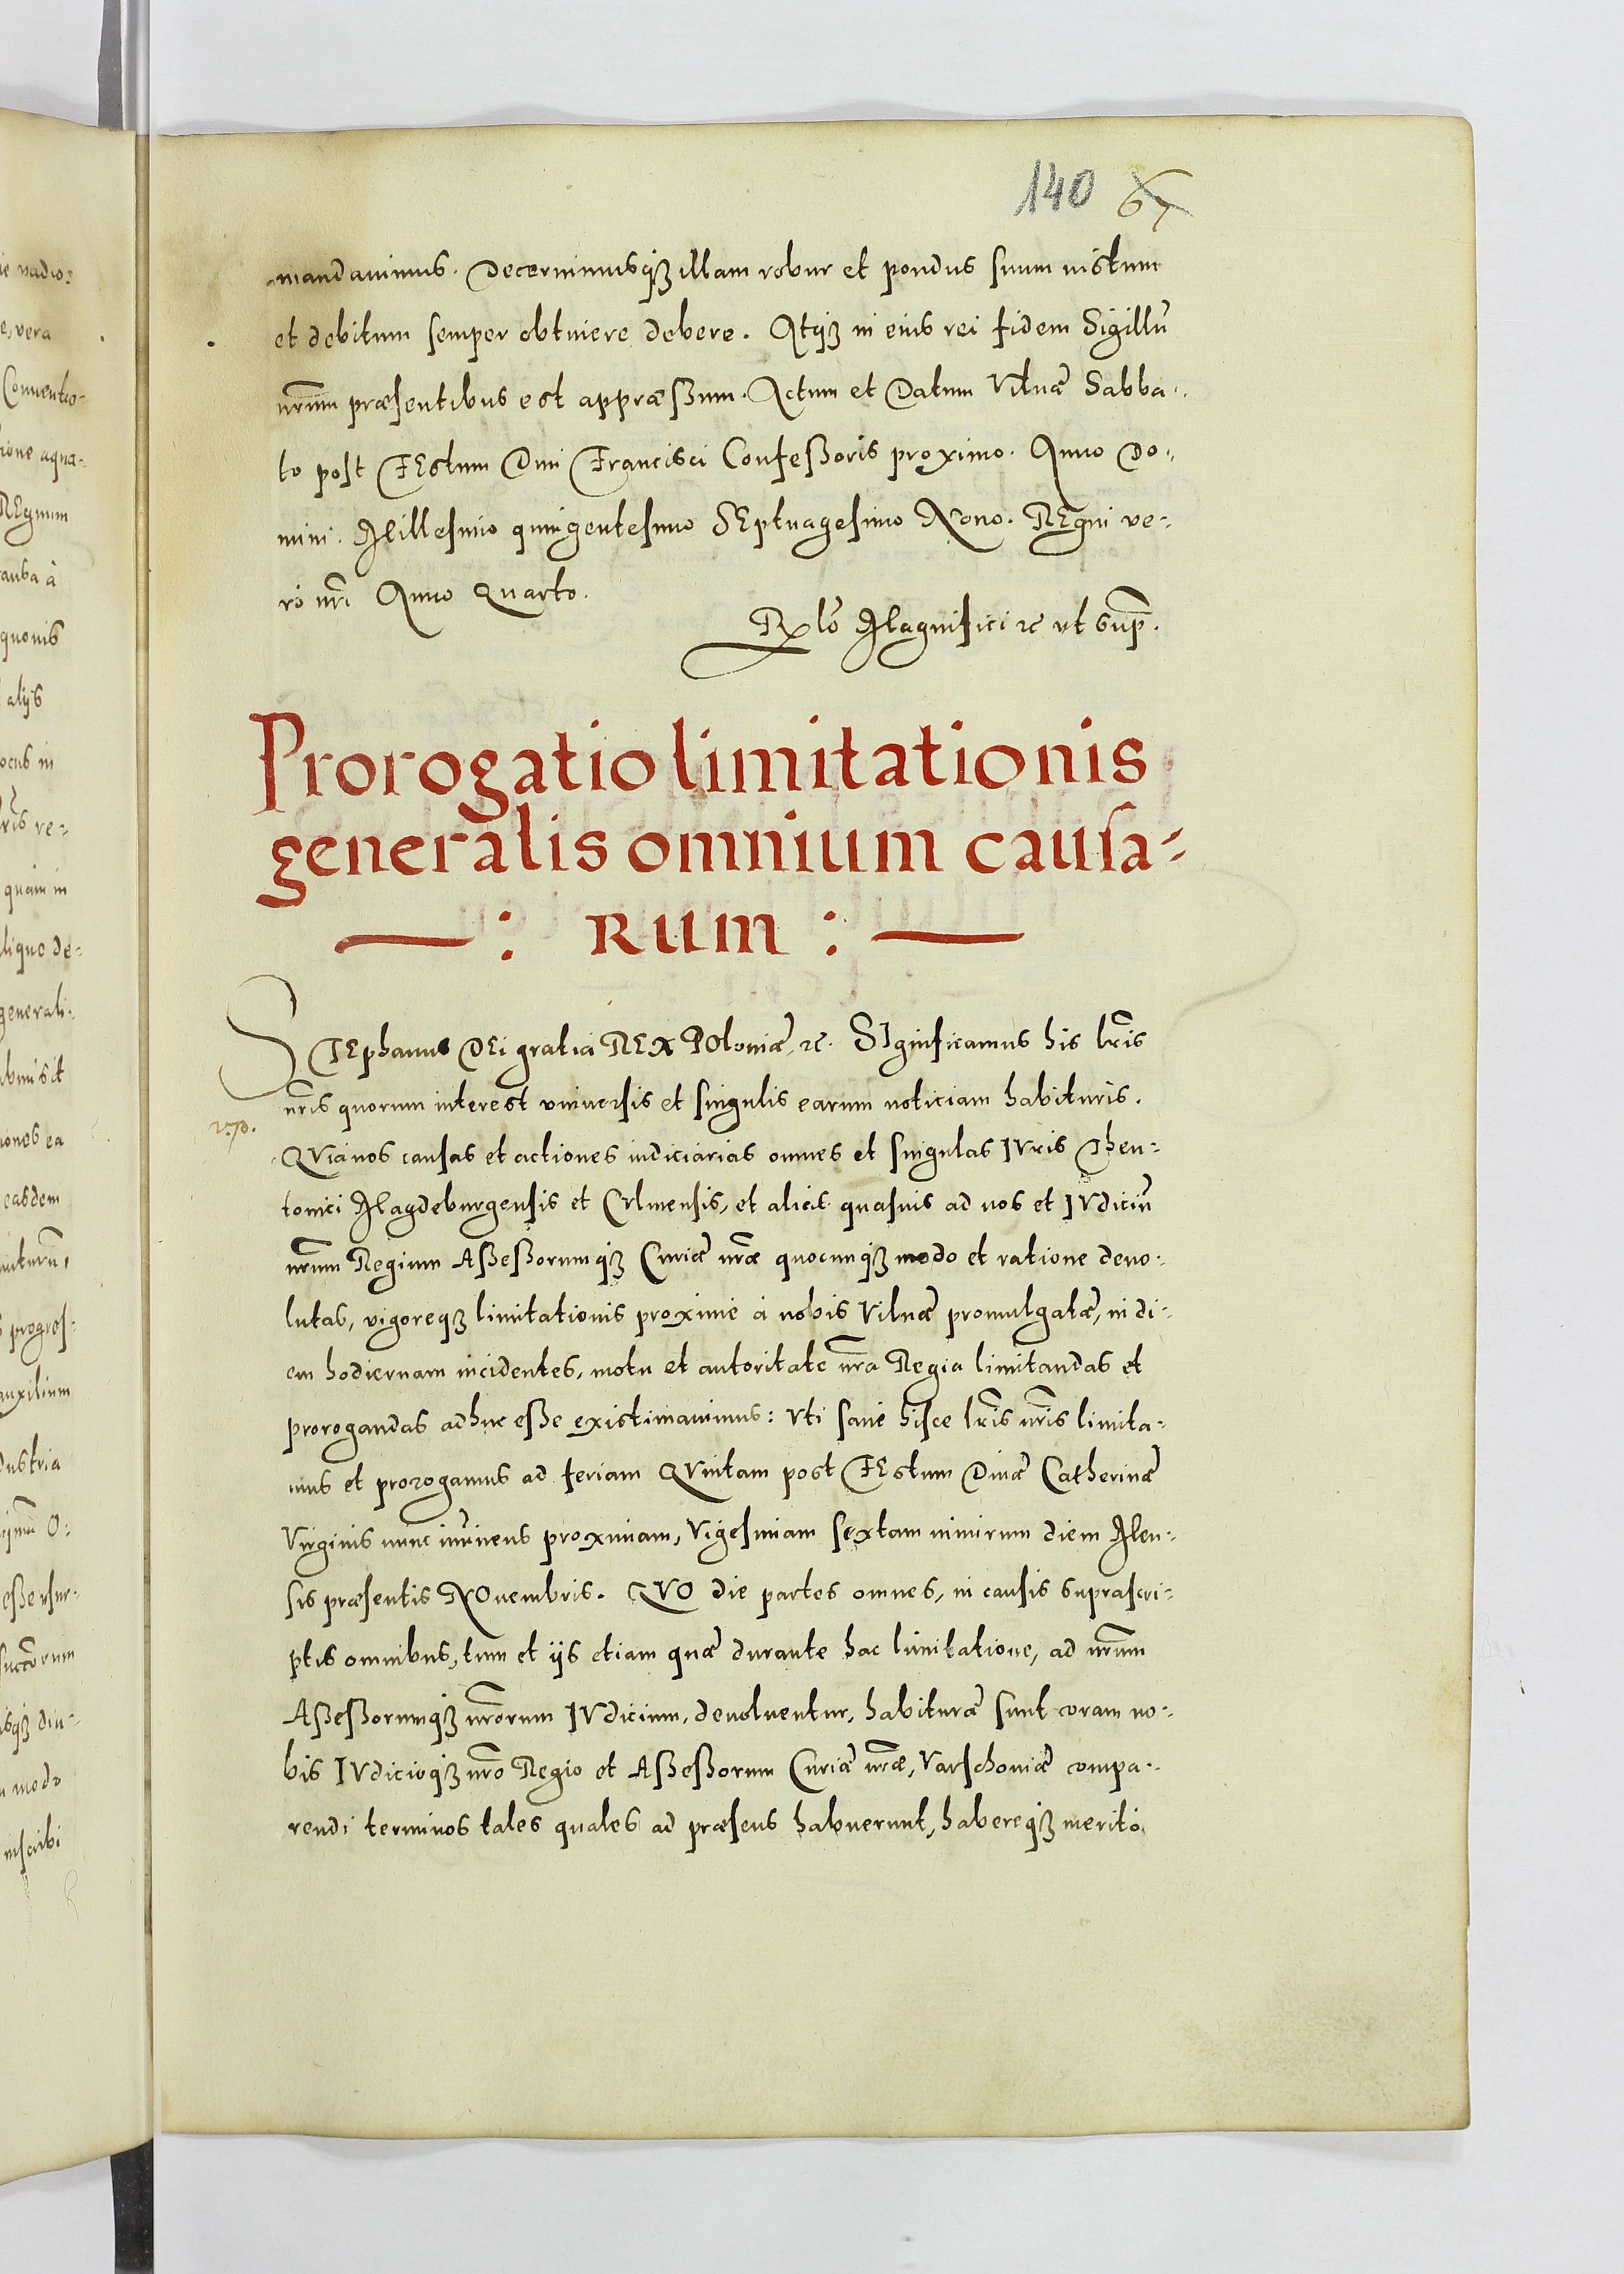 140 67
mandauimus. Decernimusq₃ illam robur et pondus suum iustum
et debitum semper obtinere debere. Atq₃ in eius rei fidem Sigillū
nr̄um præsentibus est appræßum. Actum et Datum Vilnæ Sabba-
to post FEstum Diui Francisci Confeßoris proximo. Anno Do-
mini. Millesimo quingentesimo SEptuagesimo Nono. REgni ve-
ro nr̄i Anno Quarto.
Rlō Magnifici ꝛc vt sup̄.
Prorogatio limitationis
generalis omnium causa-
: RUM :
STEphanus DEi gratia REX POloniæ, ꝛc. SIgnificamus his lr̄is
nr̄is quorum interest vniuersis et singulis earum noticiam habituris.
QVia nos causas et actiones iudiciarias omnes et singulas IVris Theu-
tonici Magdeburgensis et CVlmensis, et alias quasuis ad nos et IVdiciū
nr̄um Regium Aßeßorumq₃ Curiæ nr̄æ quocunq₃ modo et ratione deuo-
lutas, vigoreq₃ limitationis proximè à nobis Vilnæ promulgatæ, in di-
em hodiernam incidentes, motu et autoritate nr̄a Regia limitandas et
prorogandas adhuc eße existimauimus: Vti sanè hisce lr̄is nr̄is limita-
mus et prorogamus ad feriam QVintam post FEstum Diuæ Catherinæ
Virginis nunc im̄inens proximam, Vigesimam sextam nimirum diem Men-
sis præsentis NOuembris. QVO die partes omnes, in causis suprascri-
ptis omnibus, tum et ijs etiam quæ durante hac limitatione, ad nr̄um
Aßeßorumq₃ nr̄orum IVdicium, deuoluentur, habituræ sunt coram no-
bis IVdicioq₃ nr̄o Regio et Aßeßorum Curiæ nr̄æ, Varschouiæ compa-
rendi terminos tales quales ad præsens habuerunt, habereq₃ meritò